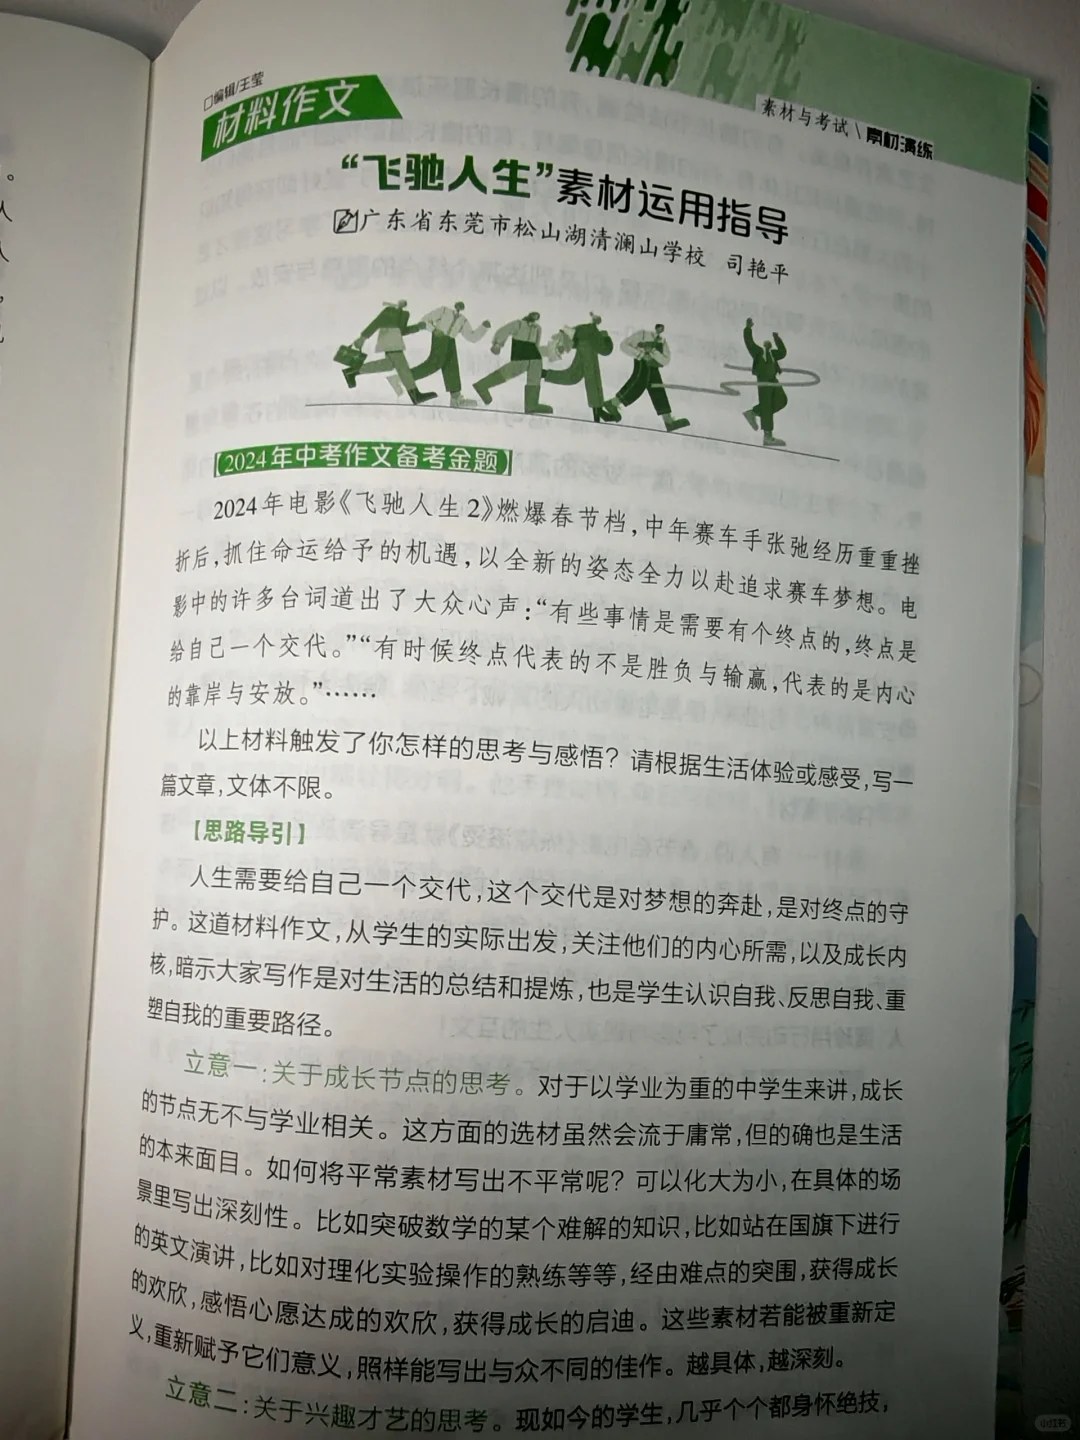 □编辑/王莹
材料作文
素材与考试\素材演练
“飞驰人生”素材运用指导
广东省东莞市松山湖清澜山学校 司艳平
【2024年中考作文备考金题】
2024年电影《飞驰人生2》燃爆春节档，中年赛车手张弛经历重重挫
折后，抓住命运给予的机遇，以全新的姿态全力以赴追求赛车梦想。电
影中的许多台词道出了大众心声：“有些事情是需要有个终点的，终点是
给自己一个交代。”“有时候终点代表的不是胜负与输赢，代表的是内心
的靠岸与安放。”……
以上材料触发了你怎样的思考与感悟？请根据生活体验或感受，写一
篇文章，文体不限。
【思路导引】
人生需要给自己一个交代，这个交代是对梦想的奔赴，是对终点的守
护。这道材料作文，从学生的实际出发，关注他们的内心所需，以及成长内
核，暗示大家写作是对生活的总结和提炼，也是学生认识自我、反思自我、重
塑自我的重要路径。
立意一：关于成长节点的思考。对于以学业为重的中学生来讲，成长
的节点无不与学业相关。这方面的选材虽然会流于庸常，但的确也是生活
的本来面目。如何将平常素材写出不平常呢？可以化大为小，在具体的场
景里写出深刻性。比如突破数学的某个难解的知识，比如站在国旗下进行
的英文演讲，比如对理化实验操作的熟练等等，经由难点的突围，获得成长
的欢欣，感悟心愿达成的欢欣，获得成长的启迪。这些素材若能被重新定
义，重新赋予它们意义，照样能写出与众不同的佳作。越具体，越深刻。
立意二：关于兴趣才艺的思考。现如今的学生，几乎个个都身怀绝技，
小红书